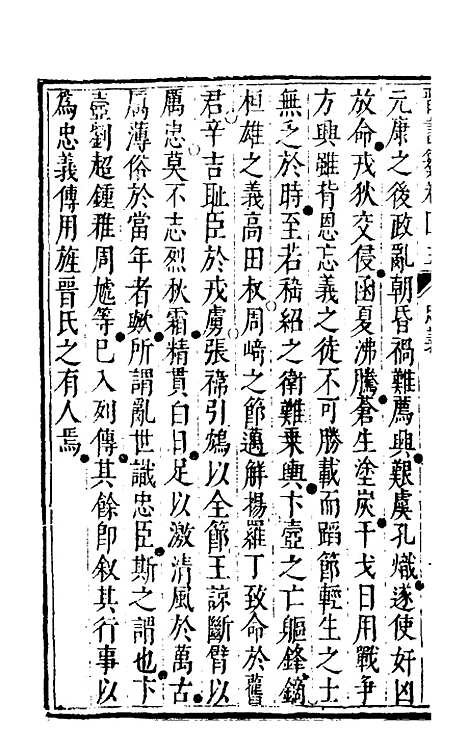 元康之後政亂朝昏禍難薦興艱虞孔熾遂使奸凶
放命戎狄交侵函夏沸騰蒼生塗炭干戈日用戰争
方興雖背恩忘義之徒不可勝載而蹈節輕生之士
無乏於時至若嵇紹之衛難乗輿卞壺之亡軀鋒鏑
桓雄之義高田叔周﨑之節邁解揚羅丁致命於舊
君辛吉耻臣於戎虜張禕引鴆以全節王諒斷臂以
厲忠莫不志烈秋霜精貫白日足以激清風於萬古
厲薄俗於當年者歟所謂亂世識忠臣斯之謂也卞
壺劉超鍾雅周虓等已入列傳其餘即叙其行事以
爲忠義傳用旌晉氏之有人焉